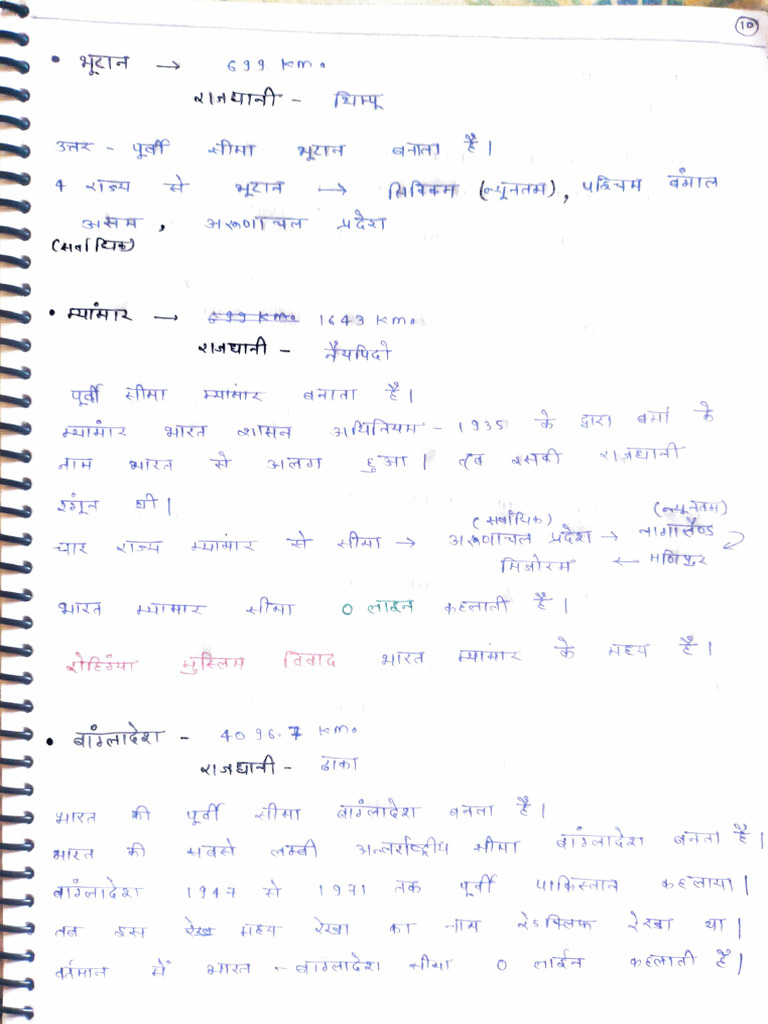 10
• भूटान → 699 km.
राजधानी - थिम्पू
उत्तर - पूर्वी सीमा भूटान बनाता है।
4 राज्य से भूटान → सिक्किम (न्यूनतम), पश्चिम बंगाल
असम, अरूणाचल प्रदेश
(सर्वाधिक)
• म्यांमार → 699 km. 1643 km.
राजधानी - नैयपिदो
पूर्वी सीमा म्यामांर बनाता है।
म्यामांर भारत शासन अधिनियम - 1935 के द्वारा बर्मा के
नाम भारत से अलग हुआ। तब इसकी राजधानी
रंगून थी।
(सर्वाधिक) (न्यूनतम)
चार राज्य म्यामांर से सीमा → अरूणाचल प्रदेश → नागालैण्ड
मिजोरम ← मणिपुर
भारत म्यामार सीमा 0 लाइन कहलाती है।
रोहिंग्या मुस्लिम विवाद भारत म्यांमार के मध्य है।
• बांग्लादेश - 4096.7 km.
राजधानी - ढाका
भारत की पूर्वी सीमा बांग्लादेश बनता है।
भारत की सबसे लम्बी अन्तर्राष्ट्रीय सीमा बांग्लादेश बनता है।
बांग्लादेश 1947 से 1971 तक पूर्वी पाकिस्तान कहलाया।
तब इस मध्य रेखा का नाम रेडक्लिफ रेखा था।
वर्तमान में भारत - बांग्लादेश सीमा 0 लाईन कहलाती है।